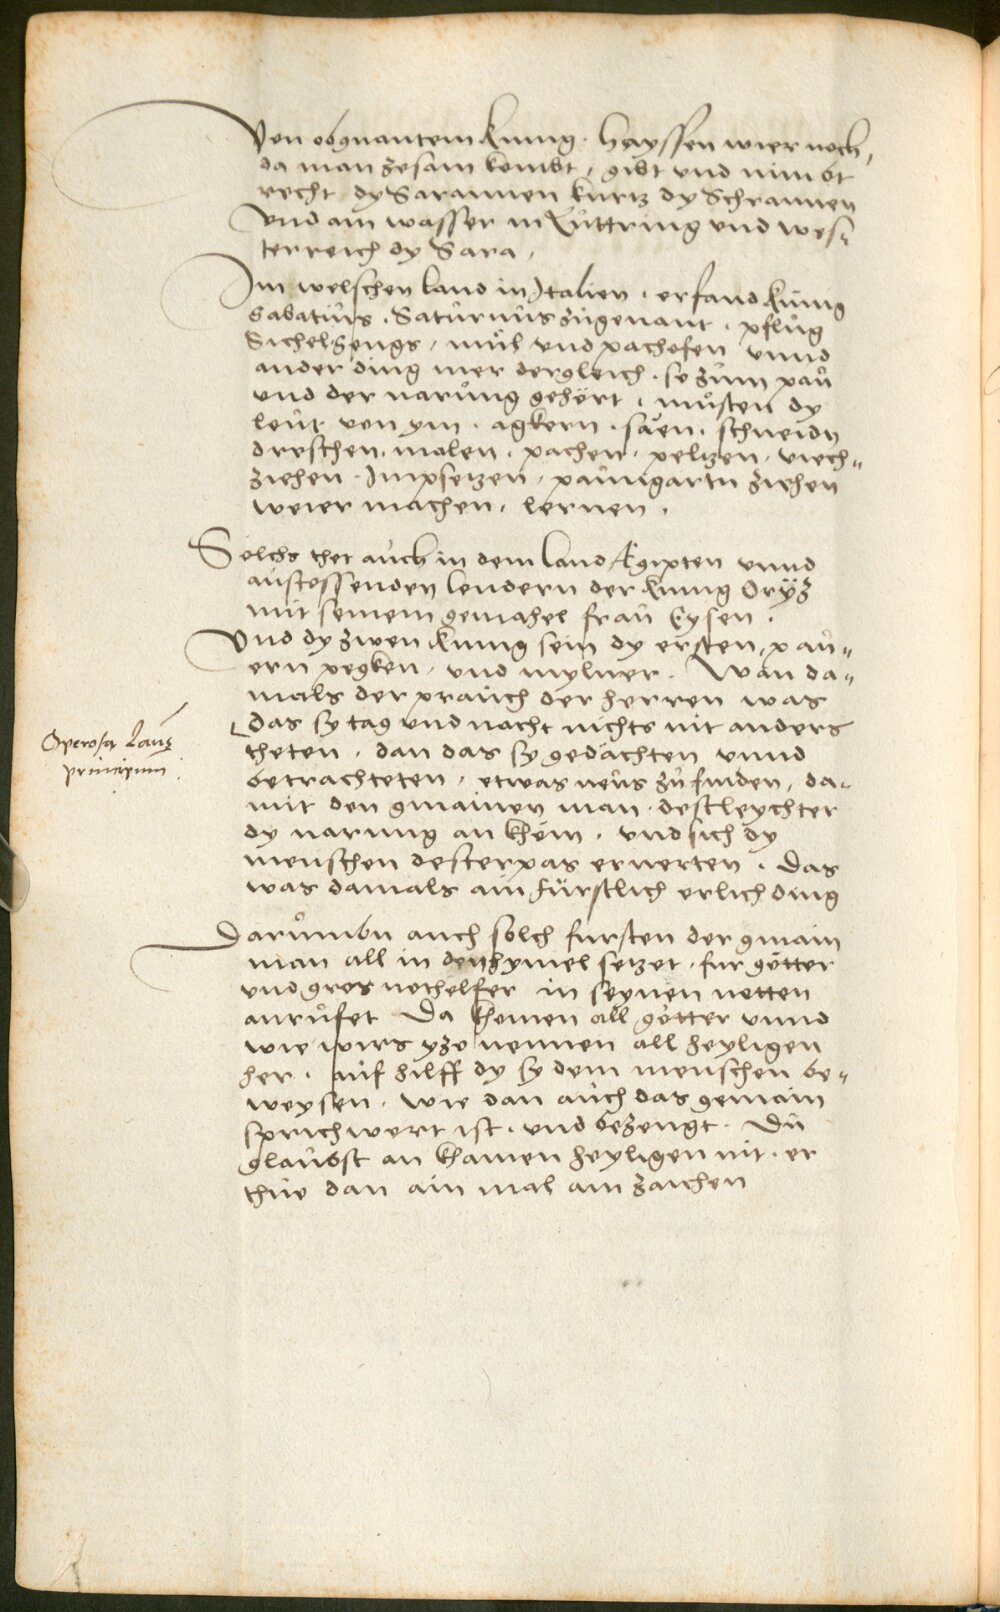 Von obgnantem kunig. hayssen wier noch,
da man zesam kombt, gibt vnd nimbt
recht dy Sarannen kurtz dy Schrannen
Vnd ain wasser in Luttring vnd wes-
terreich dy Sara,
Im welschen land in Italien. erfand kunig
Sabatius. Saturnus zugenant. pflůg
Sichel zeugs, mül vnd pachofen vnnd
ander ding mer dergleich. so zum paů
vnd der narůng gehört, můsten dy
leut von ym. agkern. säen. schneidn
dreschen. malen. pachen. peltzen. viech-
ziehen. Impsetzen, paumgartn ziehen
weier machen, lernen.
Solchs thet auch in dem land Ægipten vnnd
anstossenden lendern der kunig Oryß
mit seinem gemahel frau Eysen.
Vnd dy zwen kunig sein dy ersten, pau-
ern pegken, vnd mylner. Wan da-
mals der prauch der herren was
das sy tag vnd nacht nichts nit anders
theten. dan das sy gedachten vnnd
betrachteten, etwas neus zu finden, da-
mit den gmainen man. dest leychter
dy narung an khöm. vnd sich dy
menschen desterpas ernerten. Das
was damals ain fürstlich erlich ding
Operosa Laus
principum.
Darůmbn auch solch fursten der gmain
man all in den hymel setzet. fur götter
vnd gros nothelfer in seynen notten
anrůfet Da khomen all götter vnnd
wie wirs yzo nennen all heyligen
her. auf hilff dy sy dem menschen be-
weysen. wie dan auch das gemain
sprichwort ist. vnd bezeugt. Du
glaubst an khainen heyligen nit. er
thue dan ain mal ain zaichen